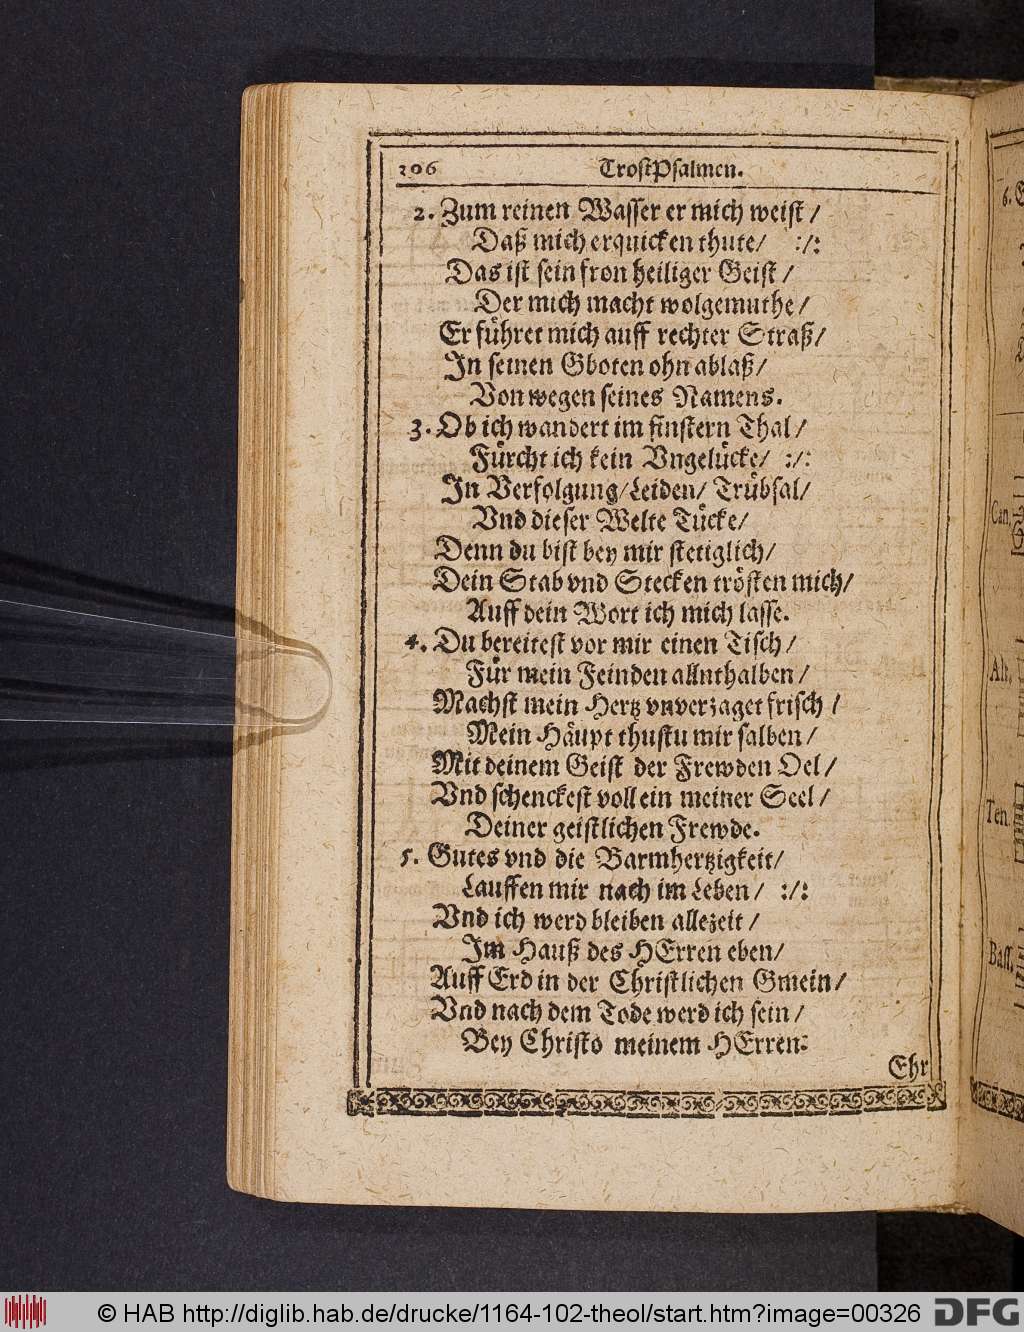 206 TrostPsalmen.
2. Zum reinen Wasser er mich weist /
Daß mich erquicken thute / :/:
Das ist sein fron heiliger Geist /
Der mich macht wolgemuthe /
Er führet mich auff rechter Straß /
In seinen Gboten ohn ablaß /
Von wegen seines Namens.
3. Ob ich wandert im finstern Thal /
Fürcht ich kein Vngelücke / :/:
In Verfolgung / Leiden / Trübsal /
Vnd dieser Welte Tücke /
Denn du bist bey mir stetiglich /
Dein Stab vnd Stecken trösten mich /
Auff dein Wort ich mich lasse.
4. Du bereitest vor mir einen Tisch /
Für mein Feinden allnthalben /
Machst mein Hertz vnverzaget frisch /
Mein Häupt thustu mir salben /
Mit deinem Geist der Frewden Oel /
Vnd schenckest voll ein meiner Seel /
Deiner geistlichen Frewde.
5. Gutes vnd die Barmhertzigkeit /
Lauffen mir nach im Leben / :/:
Vnd ich werd bleiben allezeit /
Im Hauß des HErren eben /
Auff Erd in der Christlichen Gmein /
Vnd nach dem Tode werd ich sein /
Bey Christo meinem HErren:
Ehr
6.
Can.
Alt.
Ten.
Bass.
© HAB http://diglib.hab.de/drucke/1164-102-theol/start.htm?image=00326 DFG